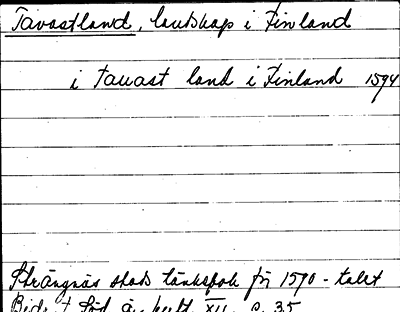 Tavastland, landskap i Finland
i tauast land i Finland 1594
Strängnäs stads tänkebok för 1590-talet
Bidr. t. Söd. äv. kult. XII s. 35